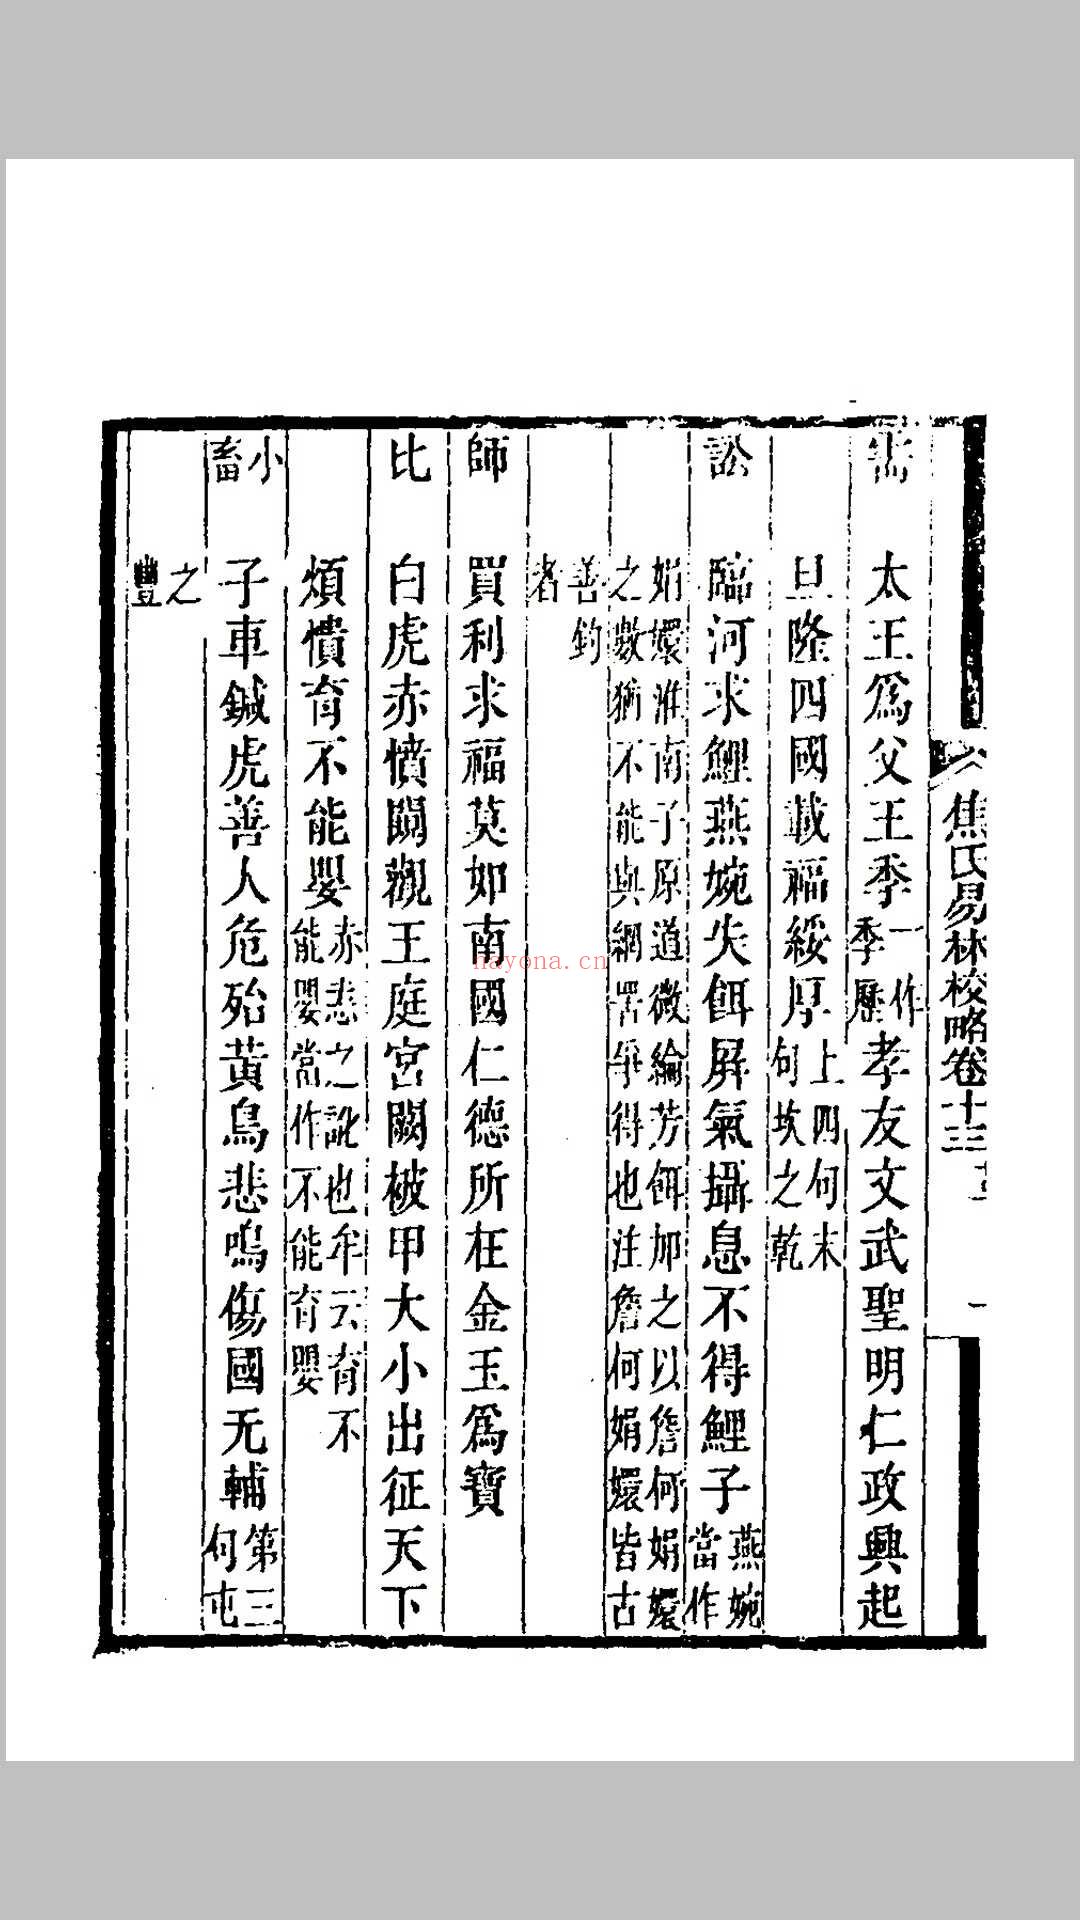 焦氏易林校略卷十三
需 太王爲父王季一作季歷孝友文武聖明仁政興起
旦隆四國載福綏厚上四句末句坎之乾
訟 臨河求鯉燕婉失餌屏氣攝息不得鯉子燕婉當作
娟嬛淮南子原道微綸芳餌加之以詹何娟嬛之數猶不能與網罟爭得也注詹何娟嬛皆古
善釣者
師 買利求福莫如南國仁德所在金玉爲寶
比 白虎赤憤闚觀王庭宮闕被甲大小出征天下
煩憒育不能嬰赤悲之訛也牟云育不能嬰當作不能育嬰
小畜 子車鍼虎善人危殆黃鳥悲鳴傷國无輔第三句屯
之豐
hayona.cn